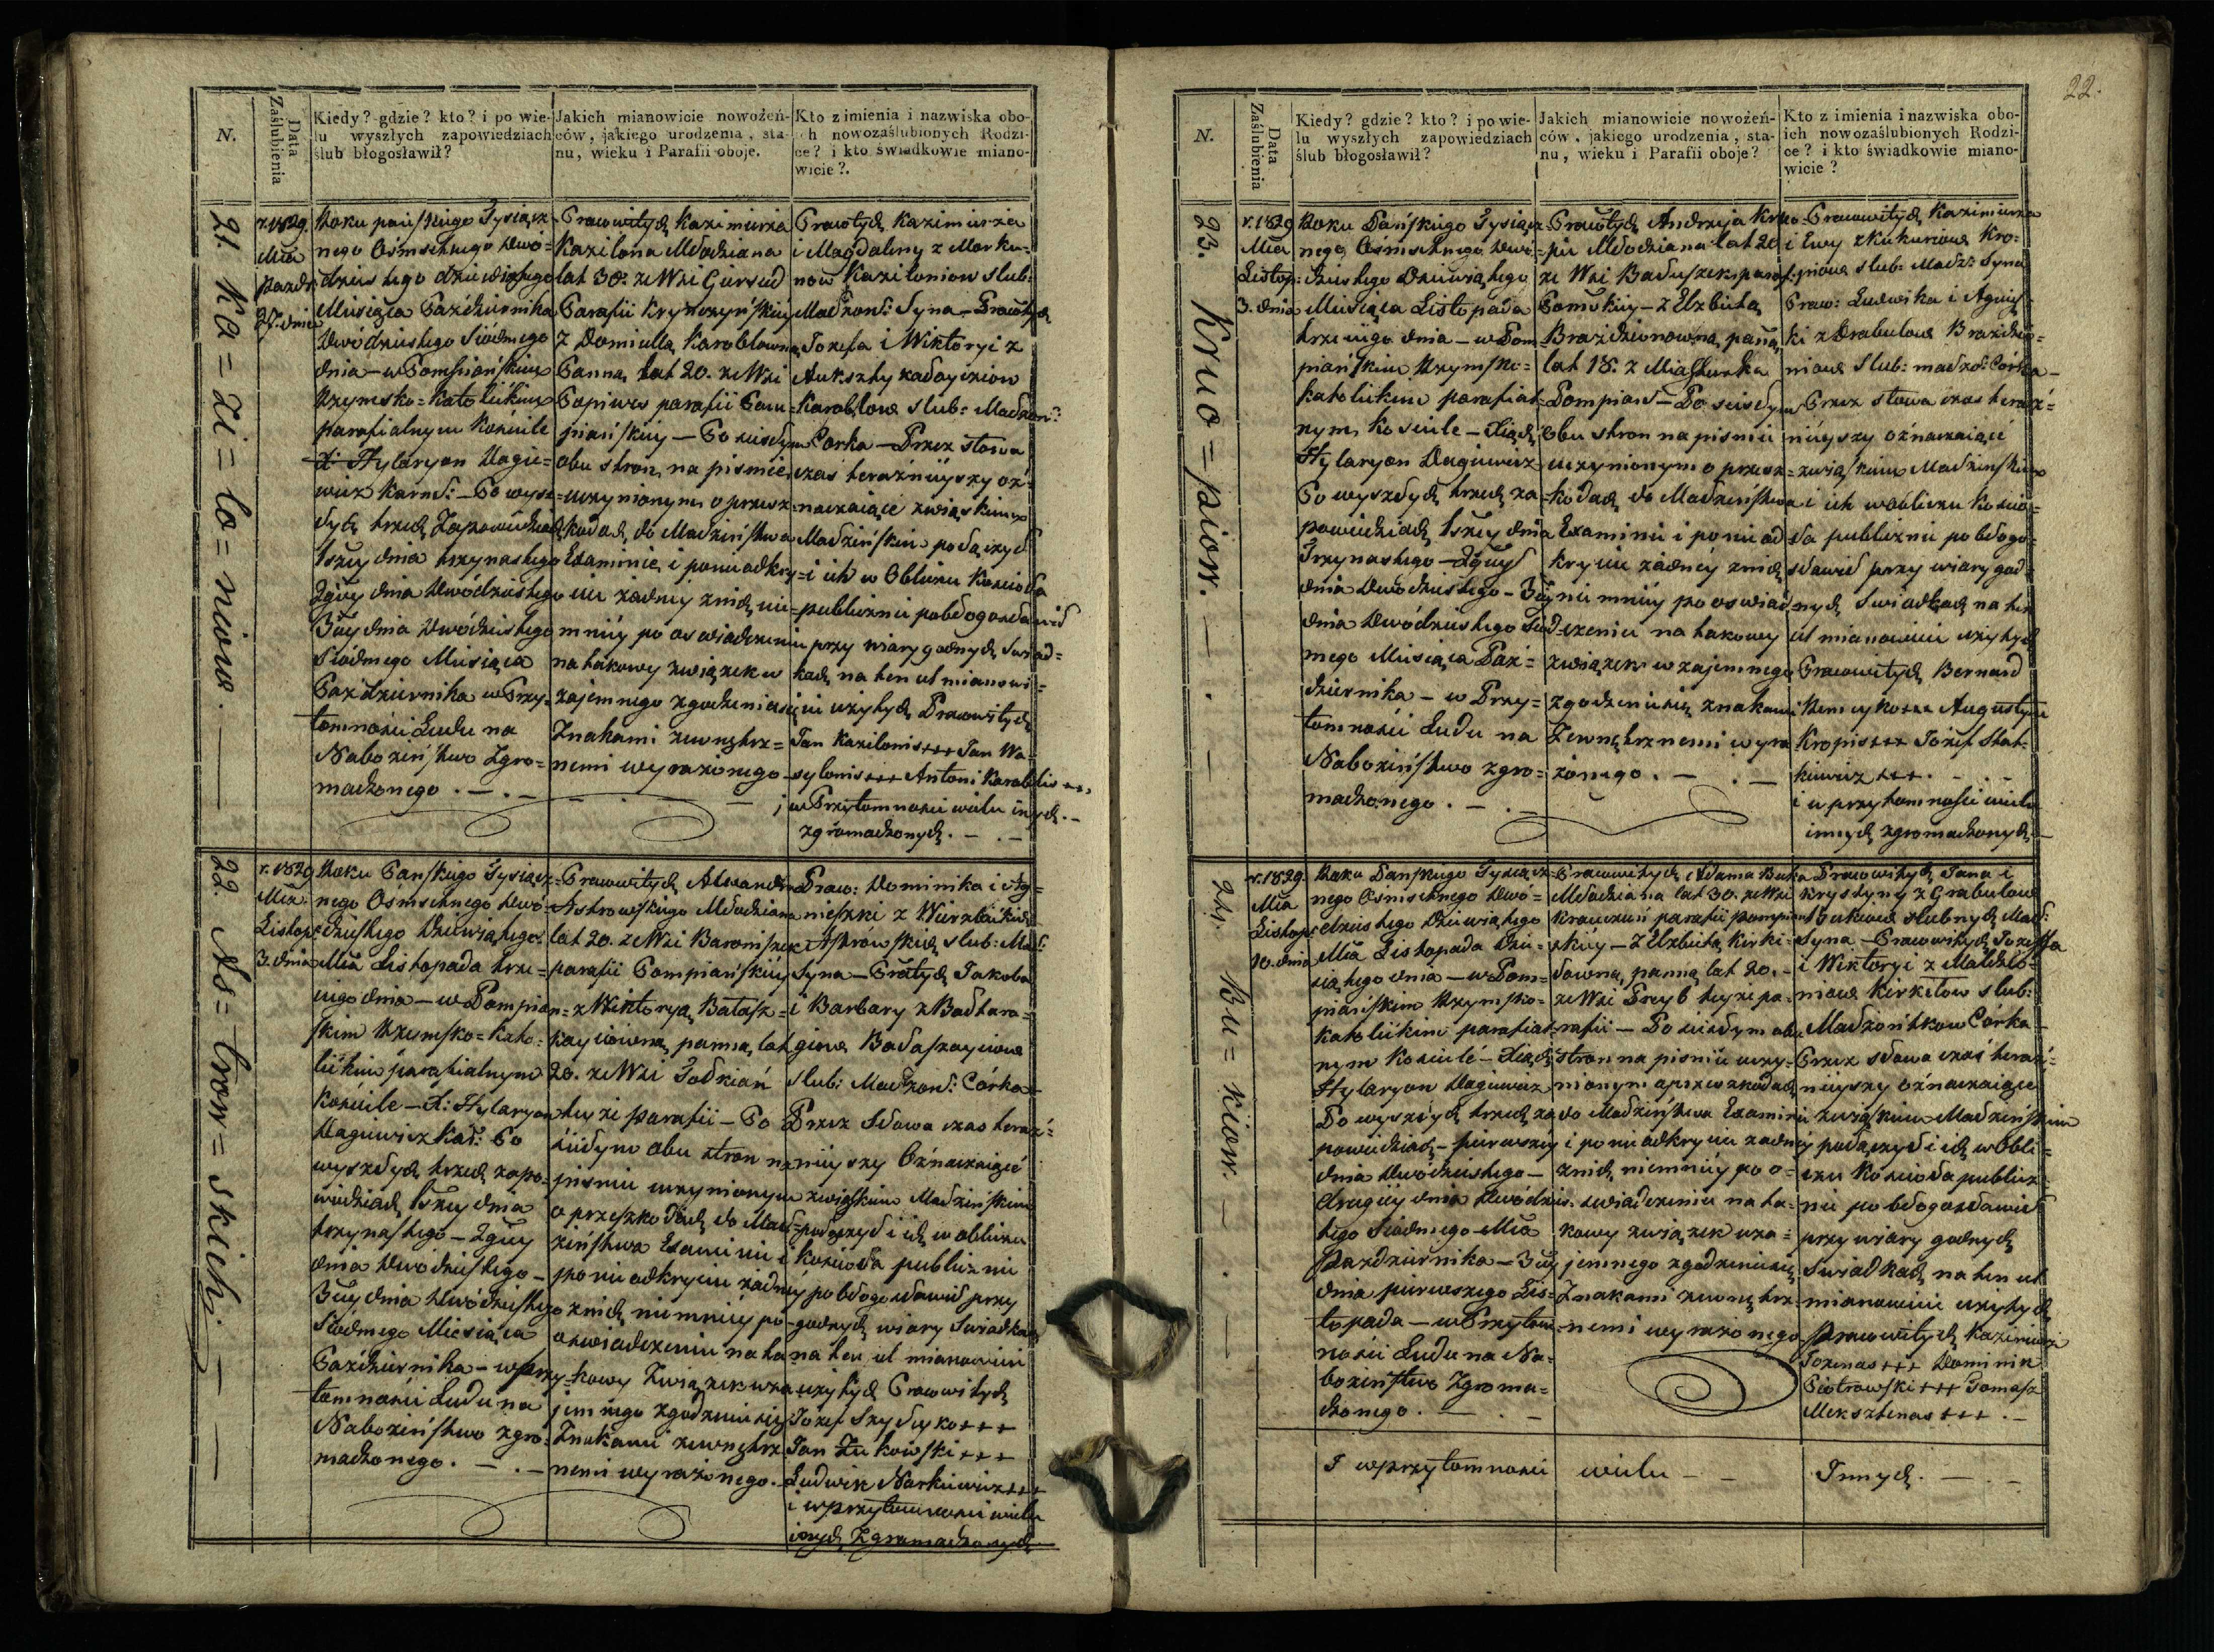 22.
N.
Data Zaślubienia
Kiedy? gdzie? kto? i po wie-
lu wyszłych zapowiedziach
ślub błogosławił?
Jakich mianowicie nowożeń-
ców, jakiego urodzenia, sta-
nu, wieku i Parafii oboje.
Kto z imienia i nazwiska obo-
ich nowozaślubionych Rodzi-
ce? i kto świadkowie miano-
wicie?.
21. Ka=zi=lo=niow.
r. 1829.
Mca
Paźdz:
27. dnia
Roku pańskiego Tysiącz-
nego Ośmsetnego dwó=
dziestego dziewiątego
Miesiąca Października
Dwódziestego Siódmego
dnia — w Pompiańskim
Rzymsko=Katolickim
parafialnym Kościele
X Hylaryon Dagie=
wicz Kaned: — Po wysz=
łych trzech Zapowiedziach
1szey dnia trzynastego
2giey dnia Dwódziestego
3ciey dnia Dwódziestego
Siódmego Miesiąca
Października w Przy-
tomności Ludu na
Nabożeństwo Zgro=
madzonego. — . —
Prawowitych Kazimierza
Kazilona Młodziana
lat 30. ze Wsi Giersud
Parafii Krynczyńskiey
z Domicellą Karoblowną
Panną lat 20. ze Wsi
Popiwes parafii Pom=
piańskiey — Po ścisłym
obu stron na piśmie
uczynionym o przesz=
kodach do Małżeństwa
Examinie i ponieodkry=
ciu żadney znich nie=
mniey po oswiadczeniu
na takowy związek w
zajemnego zgodzeniasię
Znakami zewnętrz=
nemi wyrażonego
Prawtych Kazimierza
i Magdaleny z Morku=
now Kaziloniow slub:
Małżond: Syna — Prawtych
Jozefa i Wiktoryi z
Aukszty kadayciow
Karoblow slub: Małżon:
Corka — Przez słowa
czas teraźnieyszy oz=
naczaiące związkiem
Małżeńskim połączył
i ich w Obliczu Kościoła
publicznie pobłogosławił
przy wiary godnych Swiad=
kach na ten ut mianowi=
cie użytych Prawowitych
Jan Kazilonis+++ Jan Wa=
sylonis+++ Antoni Karoblis+++
i w Przytomności wielu inych. —
zgromadzonych. — . —
22. As=trow=skich.
r. 1829
Mca
Listop:
3. dnia
Roku Pańskiego Tysiącz-
nego Ośmsetnego Dwó=
dziestego Dziewiątego
Mca Listopada trze=
ciego dnia — w Pompian=
skim Rzymsko=Kato=
lickim parafialnym
Kościele — X: Hylaryon
Dagiewicz Kań: Po
wyszłych trzech zapo=
wiedziach 1szey dnia
trzynastego — 2giey
dnia Dwódziestego —
3ciey dnia Dwódziestego
Siódmego Miesiąca
Października — w przy=
tomności Ludu na
Nabożeństwo zgro=
madzonego. — . —
Prawowitych Alexandra
Astrowskiego Młodziana
lat 20. ze Wsi Baroniszek
parafii Pompiańskiey
z Wiktoryą Batasz=
kayciowną, panną, lat
20. ze Wsi Jodkian
teyże parafii — Po
ścisłym obu stron na
piśmie uczynionym
o przeszkodach do Mał=
żeństwa Examinie i
po nieodkryciu żadney
znich niemniey po
oswiadczeniu na ta
kowy Związek wza
jemnego zgodzeniasię
Znakami zewnętrz
nemi wyrażonego.
Praw: Dominika i Ag=
nieszki z Wierzbickich
Astrówskich slub: Mał:
Syna — Prawtych Jakoba
i Barbary z Baltara=
giow Bałaszayciow
slub: Małżond: Córka —
Przez Słowa czas teraź=
nieyszy Oznaczaiące
związkiem Małżeńskim
połączył i ich w obliczu
kościoła publicznie
pobłogosławił przy
godnych wiary Swiadkach
na ten ut mianowicie
użytych Prawowitych
Jozef Szydłyko+++
Jan Żukowski+++
Ludwik Narkiewicz+++
i w przytomności wielu
inych Zgromadzonych
N.
Data Zaślubienia
Kiedy? gdzie? kto? i po wie-
lu wyszłych zapowiedziach
ślub błogosławił?
Jakich mianowicie nowożeń-
ców, jakiego urodzenia, sta-
nu, wieku i Parafii oboje?
Kto z imienia i nazwiska obo-
ich nowozaślubionych Rodzi-
ce? i kto świadkowie miano-
wicie?
23. Kruo=piow.
r. 1829
Mca
Listop:
3. dnia
Roku Pańskiego Tysiącz
nego Ośmsetnego Dwó=
dziestego Dziewiątego
Miesiąca Listopada
trzeciego dnia — w Pom
piańskim Rzymsko=
katolickim parafial=
nym Kościele — Xiądz
Hylaryon Dagiewicz
Po wyszłych trzech za=
powiedziach 1szey dnia
Trzynastego — 2giey
dnia Dwódziestego — 3ciey
dnia Dwódziestego Siód=
mego Miesiąca Paź=
dziernika — w Przy=
tomności Ludu na
Nabożeństwo zgro=
madzonego. — . —
Prawtych Andrzeja Kruo
pia Młodziana lat 20
ze Wsi Baduszek paraf:
Pomskiey — z Elzbietą
Brazdzionowną, panną,
lat 18. z Miasteczka
Pompian — Po scisłym
Obu stron na piśmie
uczynionym o przesz=
kodach do Małżeństwa
Examinie i ponieod
kryciu żadney znich
niemniey po oswiad
czeniu na takowy
związek wzajemnego
zgodzeniasię znakami
Zewnętrznemi wyra
żonego. — . —
Prawowitych Kazimierza
i Ewy z Kukuriow Kro=
piow slub: Małż: Syna
Praw: Ludwika i Agniś
ki z Drabulow Brazdzio=
niow Slub: małżo: Córka —
Przez słowa czas teraź=
nieyszy oznaczaiące
związkiem Małżeńskim
i ich w obliczu Kościo=
ła publicznie pobłogo=
sławił przy wiary god
nych Swiadkach na ten
ut mianowicie użytych
Prawowitych Bernard
Remeyko+++ Augustyn
Kropis+++ Jozef Stat=
kiewicz+++. — . —
i w przytomności wielu
innych zgromadzonych
24. Bu=kiow.
r. 1829.
Mca
Listop:
10. dnia
Roku Pańskiego Tysiącz
nego Ośmsetnego Dwó=
dziestego Dziewiątego
Mca Listopada Dzie=
siątego dnia — w Pom=
piańskim Rzymsko=
katolickim parafial=
nym Kościele — Xiądz
Hylaryon Dagiewicz
Po wyszłych trzech za
powiedziach — pierwszey
dnia Dwódziestego —
drugiey dnia Dwódzies
tego Siódmego Mca
Pazdziernika — 3ciey
dnia pierwszego Lis=
topada — w Przytom
ności Ludu na Na=
bożeństwo Zgroma=
dzonego. — . —
Prawowitych Adama Buka
Młodziana lat 30. ze Wsi
Krauczun parafii pompian
skiey — z Elzbietą Kirki=
łowną, panną lat 20. —
ze Wsi Preyb teyże pa=
rafii — Po ścisłym obu
stron na piśmie uczy=
nionym o przeszkodach
do Małżeństwa Examini
i po nieodkryciu żadney
znich, niemniey po o=
swiadczeniu na ta=
kowy związek wza=
jemnego zgodzeniasię
Znakami zewnętrz=
nemi wyrażonego
Prawowitych Jana i
Krystyny z Grabulow
Bukow slubnych Mał:
Syna — Prawowitych Jozeffa
i Wiktoryi z
Kirkiłow slub:
Małżonkow Córka —
Przez słowa czas teraź=
nieyszy oznaczaiące
związkiem Małżeńskim
połączył i ich w Obli=
czu Kościoła publicz=
nie pobłogosławił
przy wiary godnych
Swiadkach na ten ut
mianowicie użytych
Prawowitych Kazimierz
Jozenas+++ Dominik
Piotrowski+++ Tomasz
Mekszlenas+++. —
I w przytomności wielu — — Innych. — . —